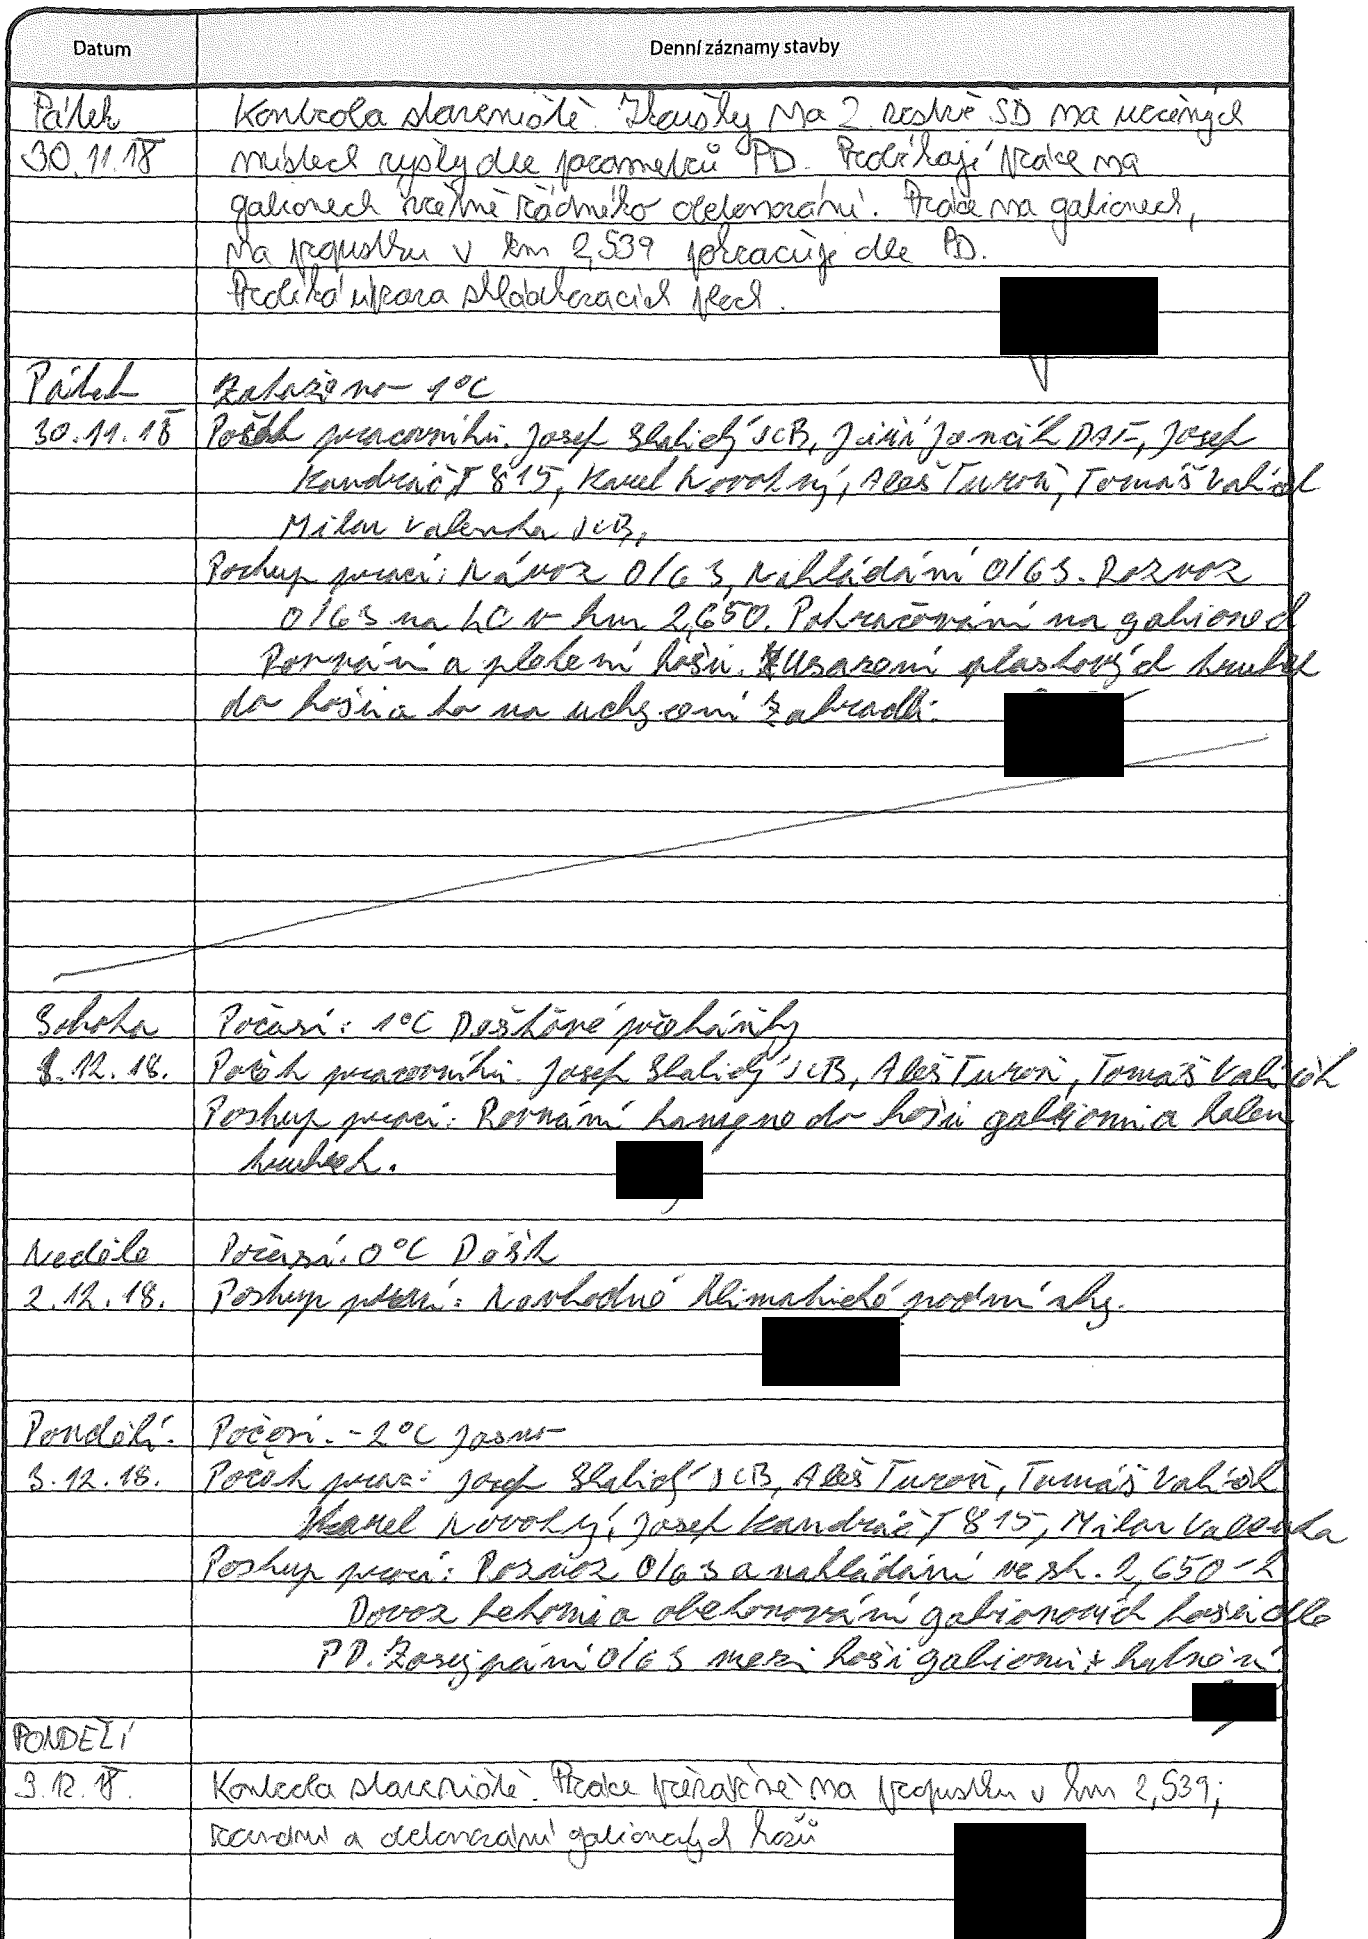 Datum
Denní záznamy stavby
Pátek
Kontrola staveniště. Zkoušky na 2. vrstvě ŠD na určených
30.11.18
místech vyšly dle parametrů PD. Probíhají práce na
gabionech včetně řádného obetonování. Práce na gabionech,
na propustku v km 2,539 pokračuje dle PD.
Probíhá úprava skladovacích ploch.
Pátek
Zataženo 1°C
30.11.18
Počet pracovníků: Josef Slabický JCB, Jiří Jančík DAF, Josef
Kandráč T 815, Karel Novotný, Aleš Turoň, Tomáš Valíček
Milan Valenta JCB,
Postup prací: Návoz 0/63, Nakládání 0/63. Rozvoz
0/63 na LC v km 2,650. Pokračování na gabionech
Rovnání a pletení košů. Usazení plastových trubek
do košů a to na uchycení zábradlí.
Sobota
Počasí: 1°C Dešťové přeháňky
1.12.18.
Počet pracovníků: Josef Slabický JCB, Aleš Turoň, Tomáš Valíček
Postup prací: Rovnání kamene do košů gabionů a kolem
trubek.
Neděle
Počasí: 0°C Déšť
2.12.18.
Postup prací: Nevhodné klimatické podmínky.
Pondělí.
Počasí: -2°C Jasno
3.12.18.
Počet prac: Josef Slabický JCB, Aleš Turoň, Tomáš Valíček
Karel Novotný, Josef Kandráč T 815, Milan Valenta
Postup prací: Rozvoz 0/63 a nakládání ve sk. 2,650-L
Dovoz betonu a obetonování gabionových košů dle
PD. Zasypání 0/63 mezi koši gabionů + hutnění
PONDĚLÍ
3.12.18.
Kontrola staveniště. Práce převážně na propustku v km 2,539,
rovnání a obetonování gabionových košů